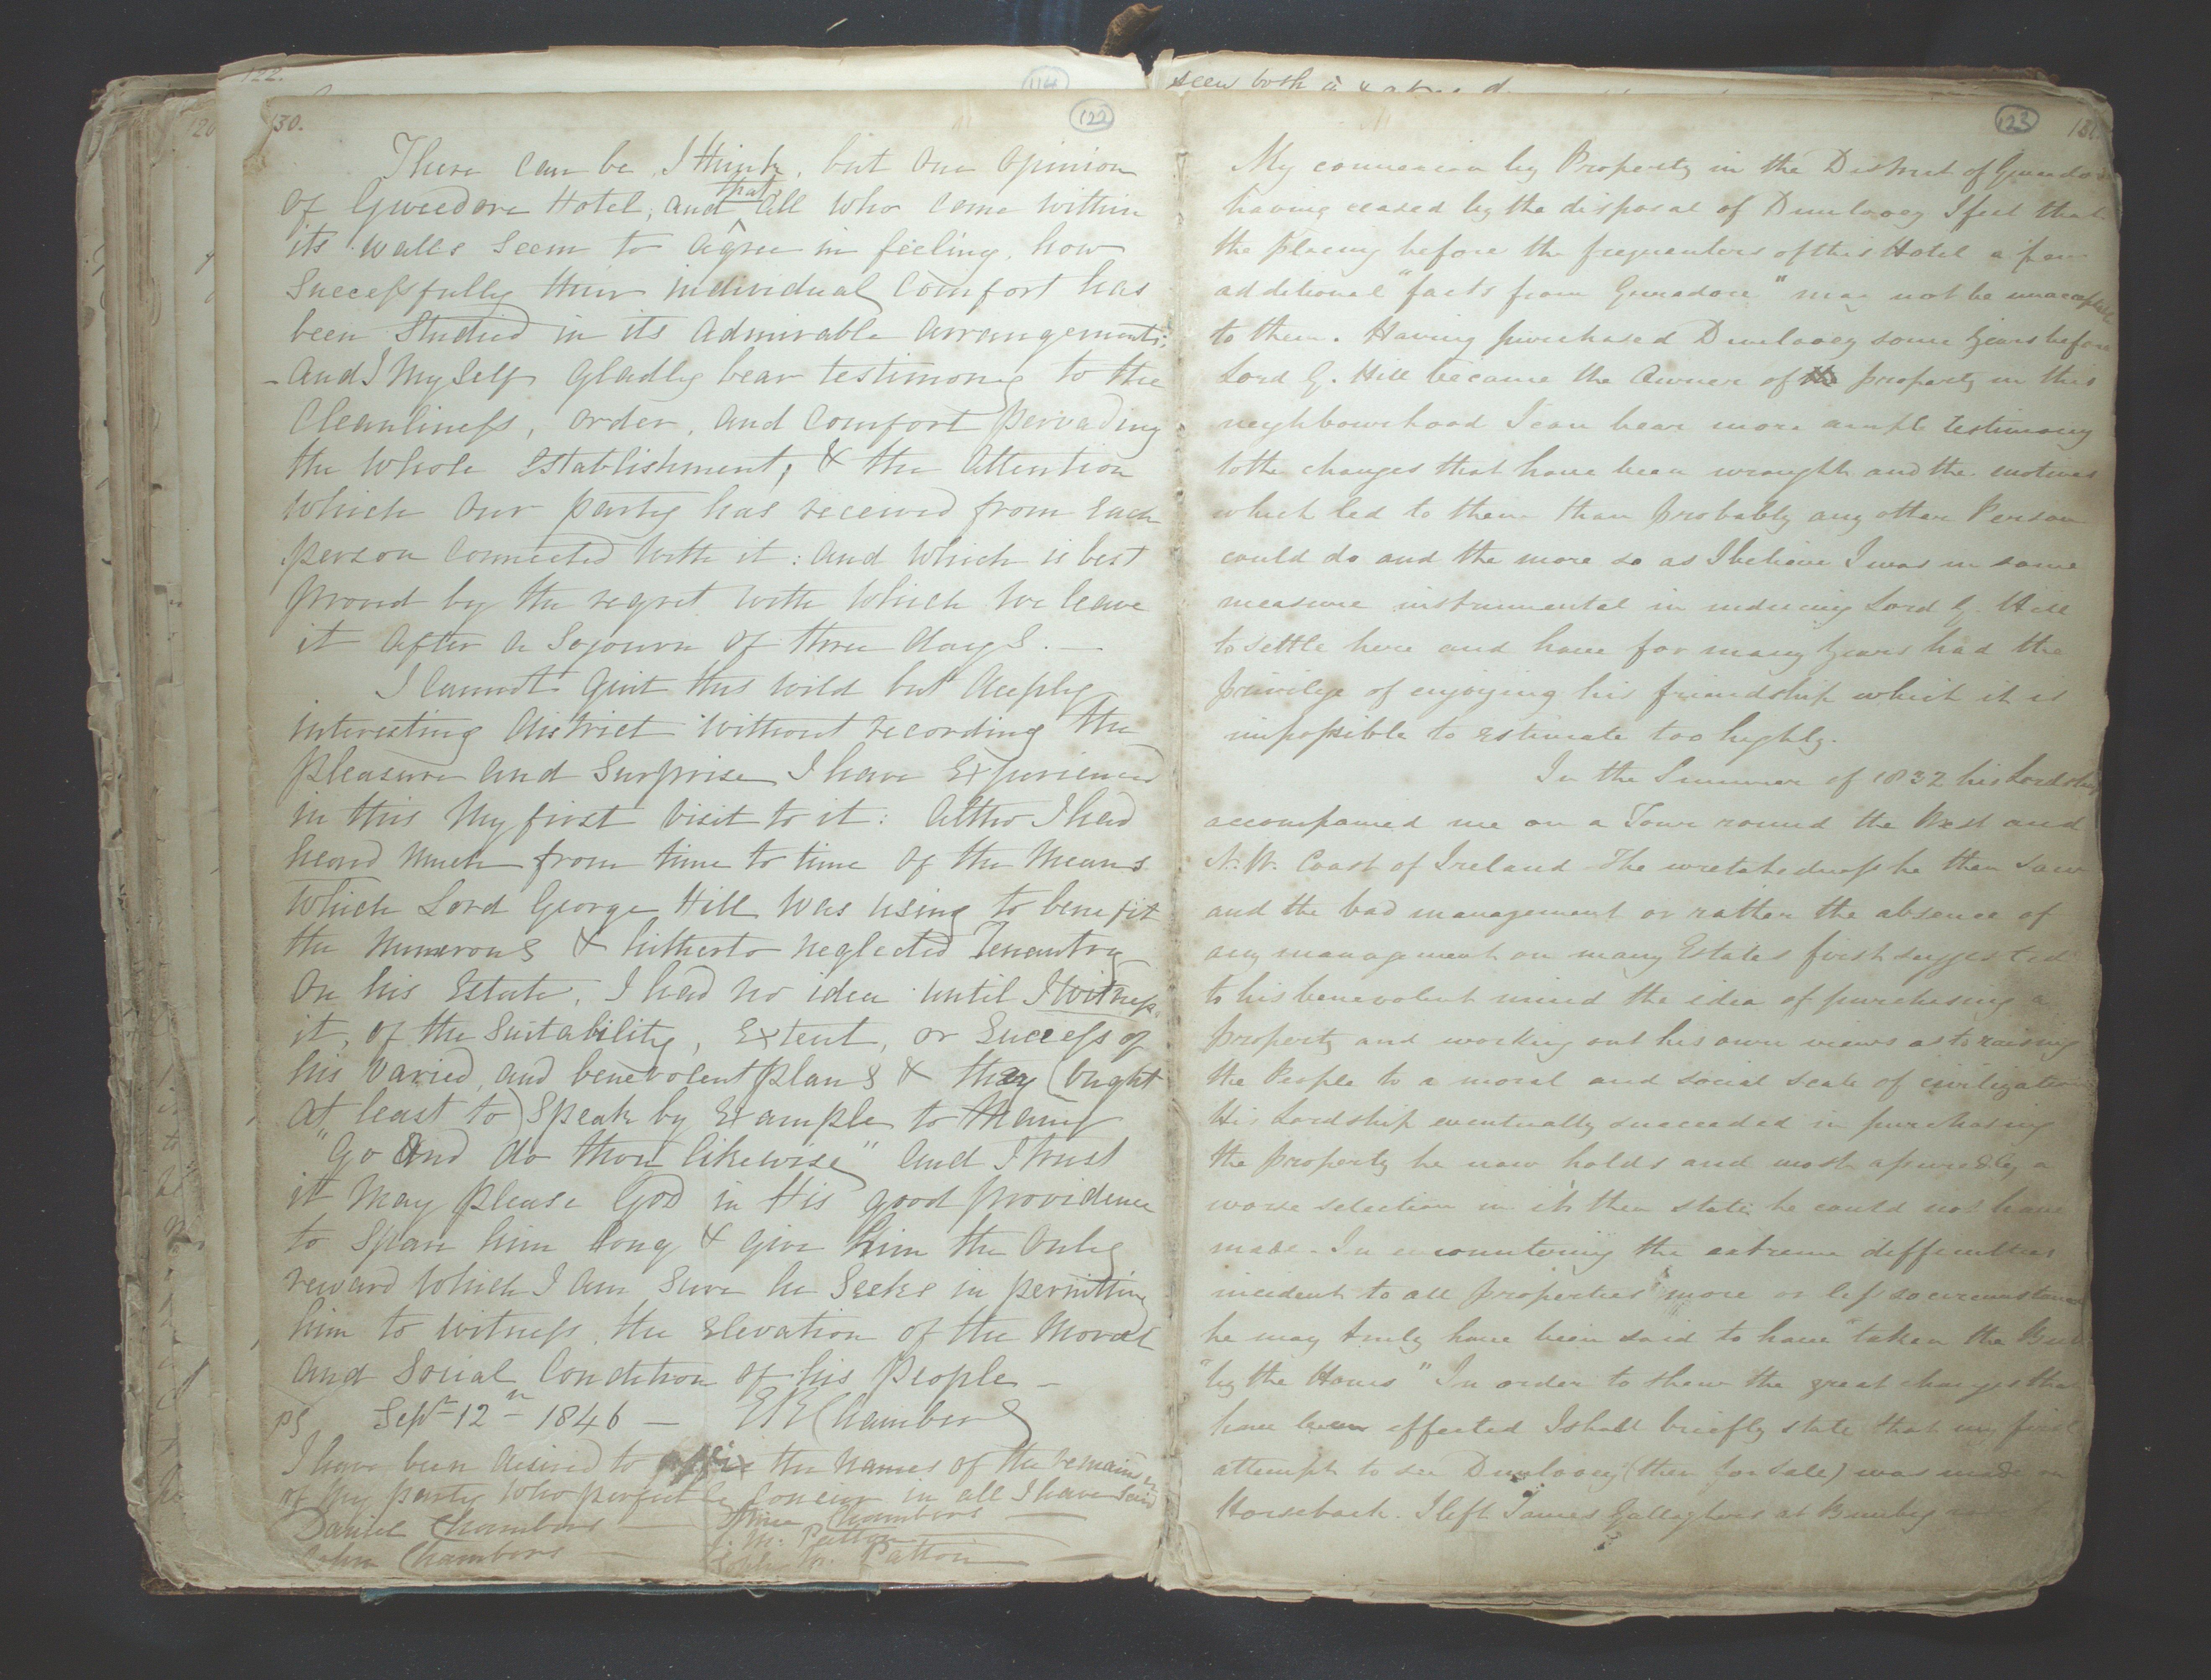 122.
114
seen both
130.
122
There can be, I think, but one opinion
of Gweedore Hotel; and that all who come within
its walls seem to agree in feeling, how
successfully their individual comfort has
been studied in its admirable arrangements;
- and I myself gladly bear testimony to the
cleanliness, order, and comfort pervading
the whole establishment, & the attention
which our party has received from each
person connected with it: and which is best
proved by the regret with which we leave
it after a sojourn of three days. —
I cannot quit this wild but deeply
interesting district without recording the
pleasure and surprise I have experienced
in this my first visit to it: altho I had
heard much from time to time of the means
which Lord George Hill was using to benefit
the numerous & hitherto neglected Tenantry
on his Estate, I had no idea until I witness
it, of the suitability, extent, or success of
his varied, and benevolent plans & they (ought
at least to) speak by example to many
"Go and do thou likewise" and I trust
it may please God in His good providence
to spare him long & give him the only
reward which I am sure he seeks in permitting
him to witness the elevation of the moral
and social condition of his people —
PS Sepr 12th 1846 — E R Chambers
I have been desired to affix the names of the remainder
of my party who perfectly concur in all I have said
Daniel Chambers — Anne Chambers —
John Chambers — J. M. Patton —
M. Patton —
123
131
My connexion by Property in the District of Gweedore
having ceased by the disposal of Dunlooey I feel that
the placing before the frequenters of this Hotel a few
additional "facts from Gweedore" may not be unacceptable
to them. Having purchased Dunlooey some years before
Lord G. Hill became the Owner of the property in this
neighbourhood I can bear more ample testimony
to the changes that have been wrought and the motives
which led to them than probably any other Person
could do and the more so as I believe I was in some
measure instrumental in inducing Lord G. Hill
to settle here and have for many years had the
privilege of enjoying his friendship which it is
impossible to estimate too highly.
In the Summer of 1832 his Lordship
accompanied me on a Tour round the West and
N.W. Coast of Ireland The wretchedness he then saw
and the bad management or rather the absence of
any management on many Estates first suggested
to his benevolent mind the idea of purchasing a
property and working out his own views as to raising
the People to a moral and social scale of civilization
His Lordship eventually succeeded in purchasing
the property he now holds and most assuredly a
worse selection in it's then state he could not have
made. In encountering the extreme difficulties
incident to all properties more or less so circumstanced
he may truly have been said to have "taken the Bull
"by the Horns" In order to shew the great changes that
have been effected I shall briefly state that my first
attempt to see Dunlooey (then for sale) was made on
Horseback. I left James Gallaghers at Bunbeg